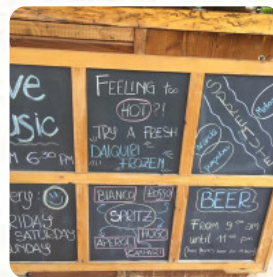 ve
usic
M 6:30 PM
FEELING too
HOT?!
TRY A FRESH
DAIQUIRI
FROZEN
ery:
RIDAY
SATURDAY
UNDAY
BIANCO ROSSO
SPRITZ
APEROL HUGO
CAMPARI
BEER
FROM 9:00 am
until 11:00 pm